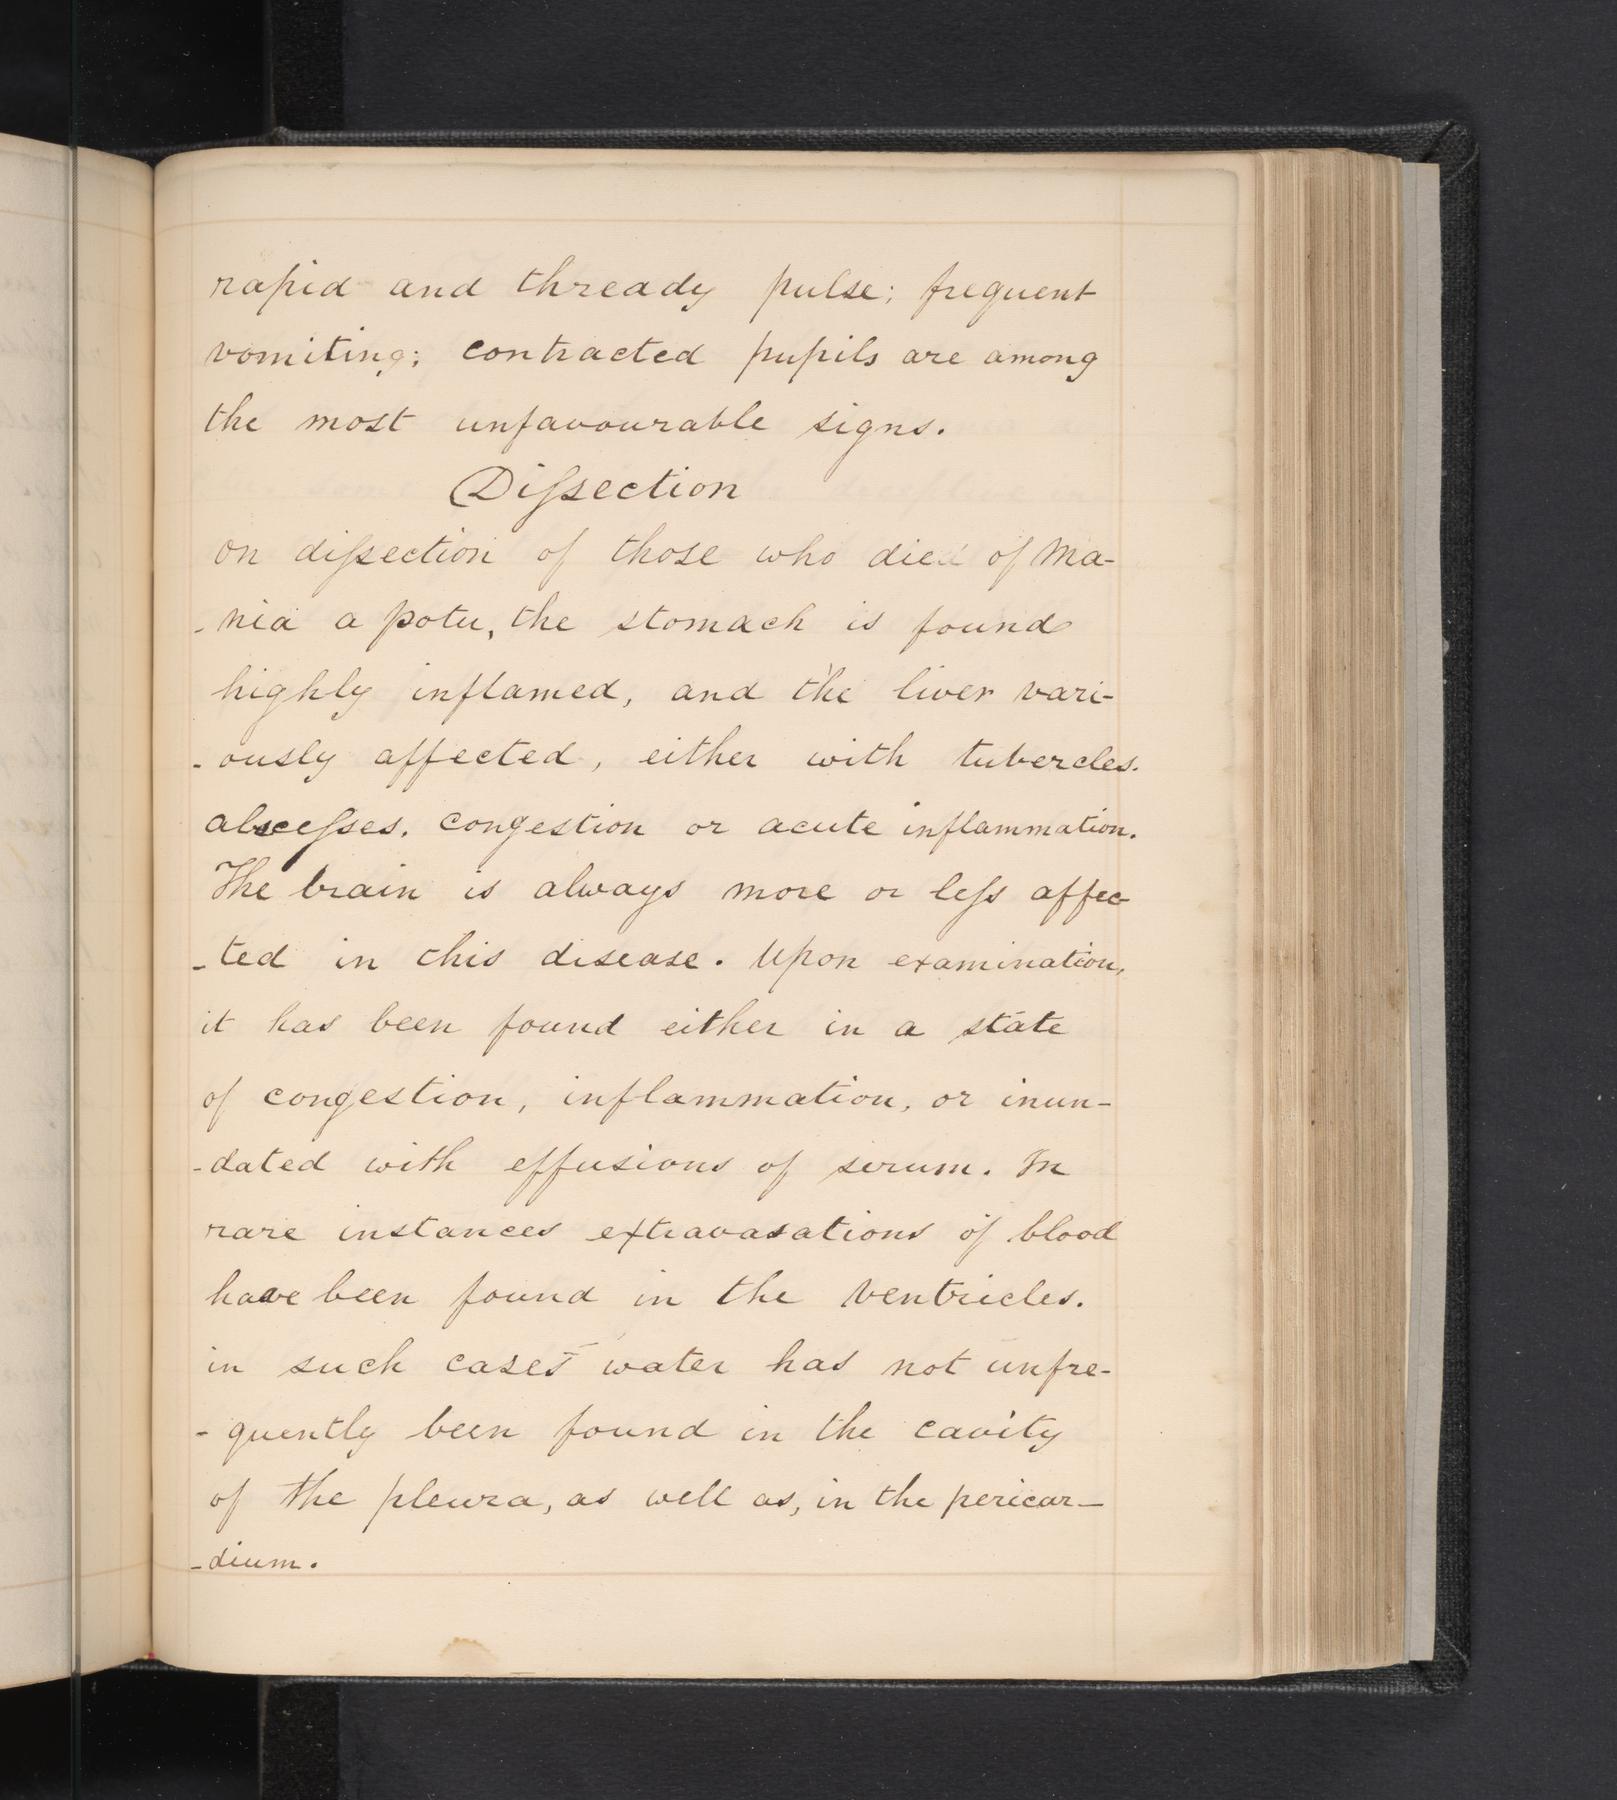 rapid and thready pulse; frequent
vomiting; contracted pupils are among
the most unfavourable signs.
Diſsection
on diſsection of those who died of Ma-
-nia a potu, the stomach is found
highly inflamed, and the liver vari-
-ously affected, either with tubercles.
absceſses. congestion or acute inflammation.
The brain is always more or leſs affec-
-ted in this disease. Upon examination,
it has been found either in a state
of congestion, inflammation, or inun-
-dated with effusions of serum. In
rare instances extravasations of blood
have been found in the ventricles.
in such cases water has not unfre-
-quently been found in the cavity
of the pleura, as well as, in the pericar-
-dium.